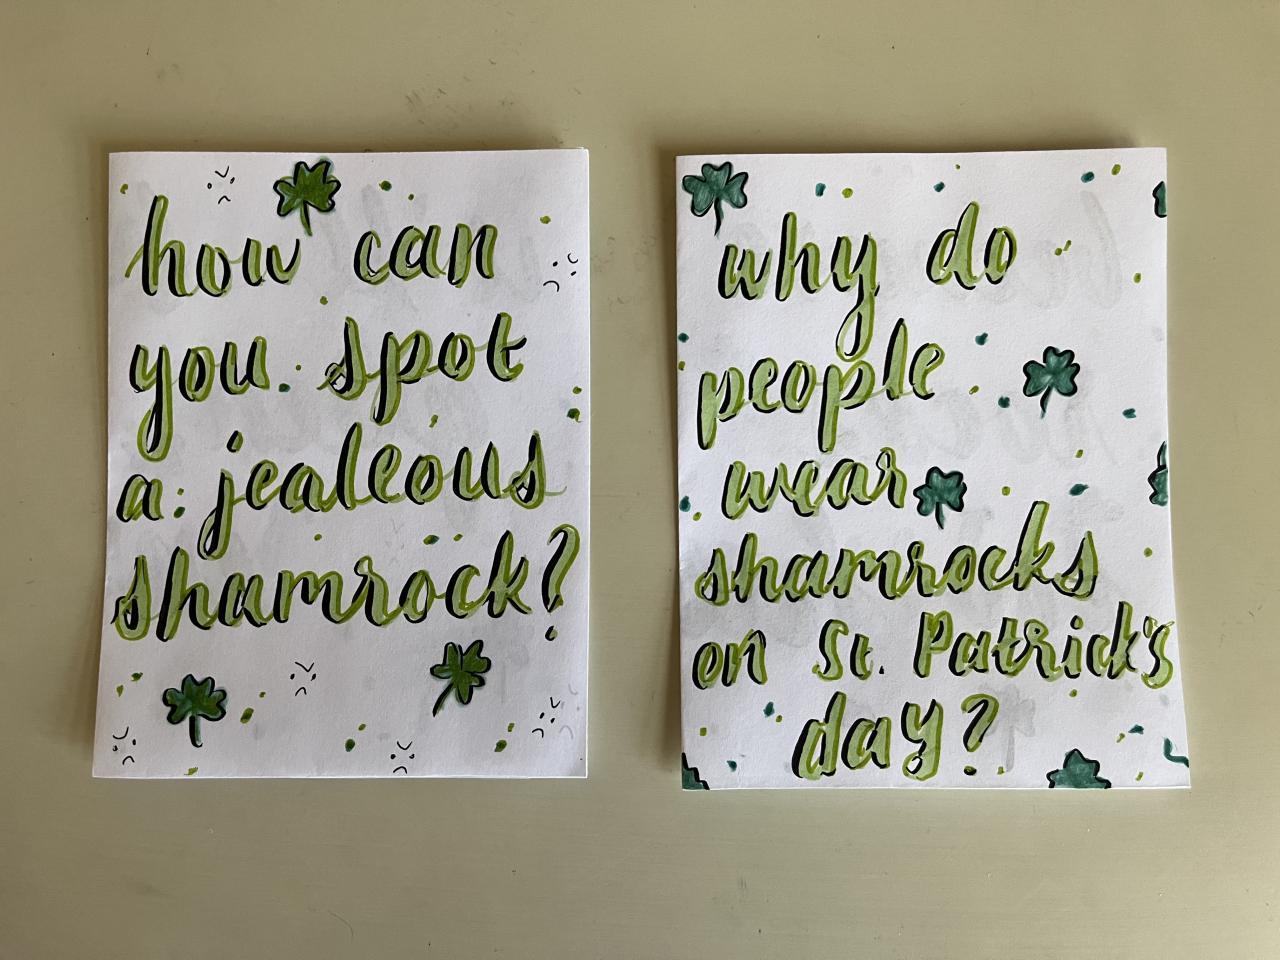 how can
you spot
a jealeous
shamrock?
why do
people
wear
shamrocks
on St. Patrick's
day?